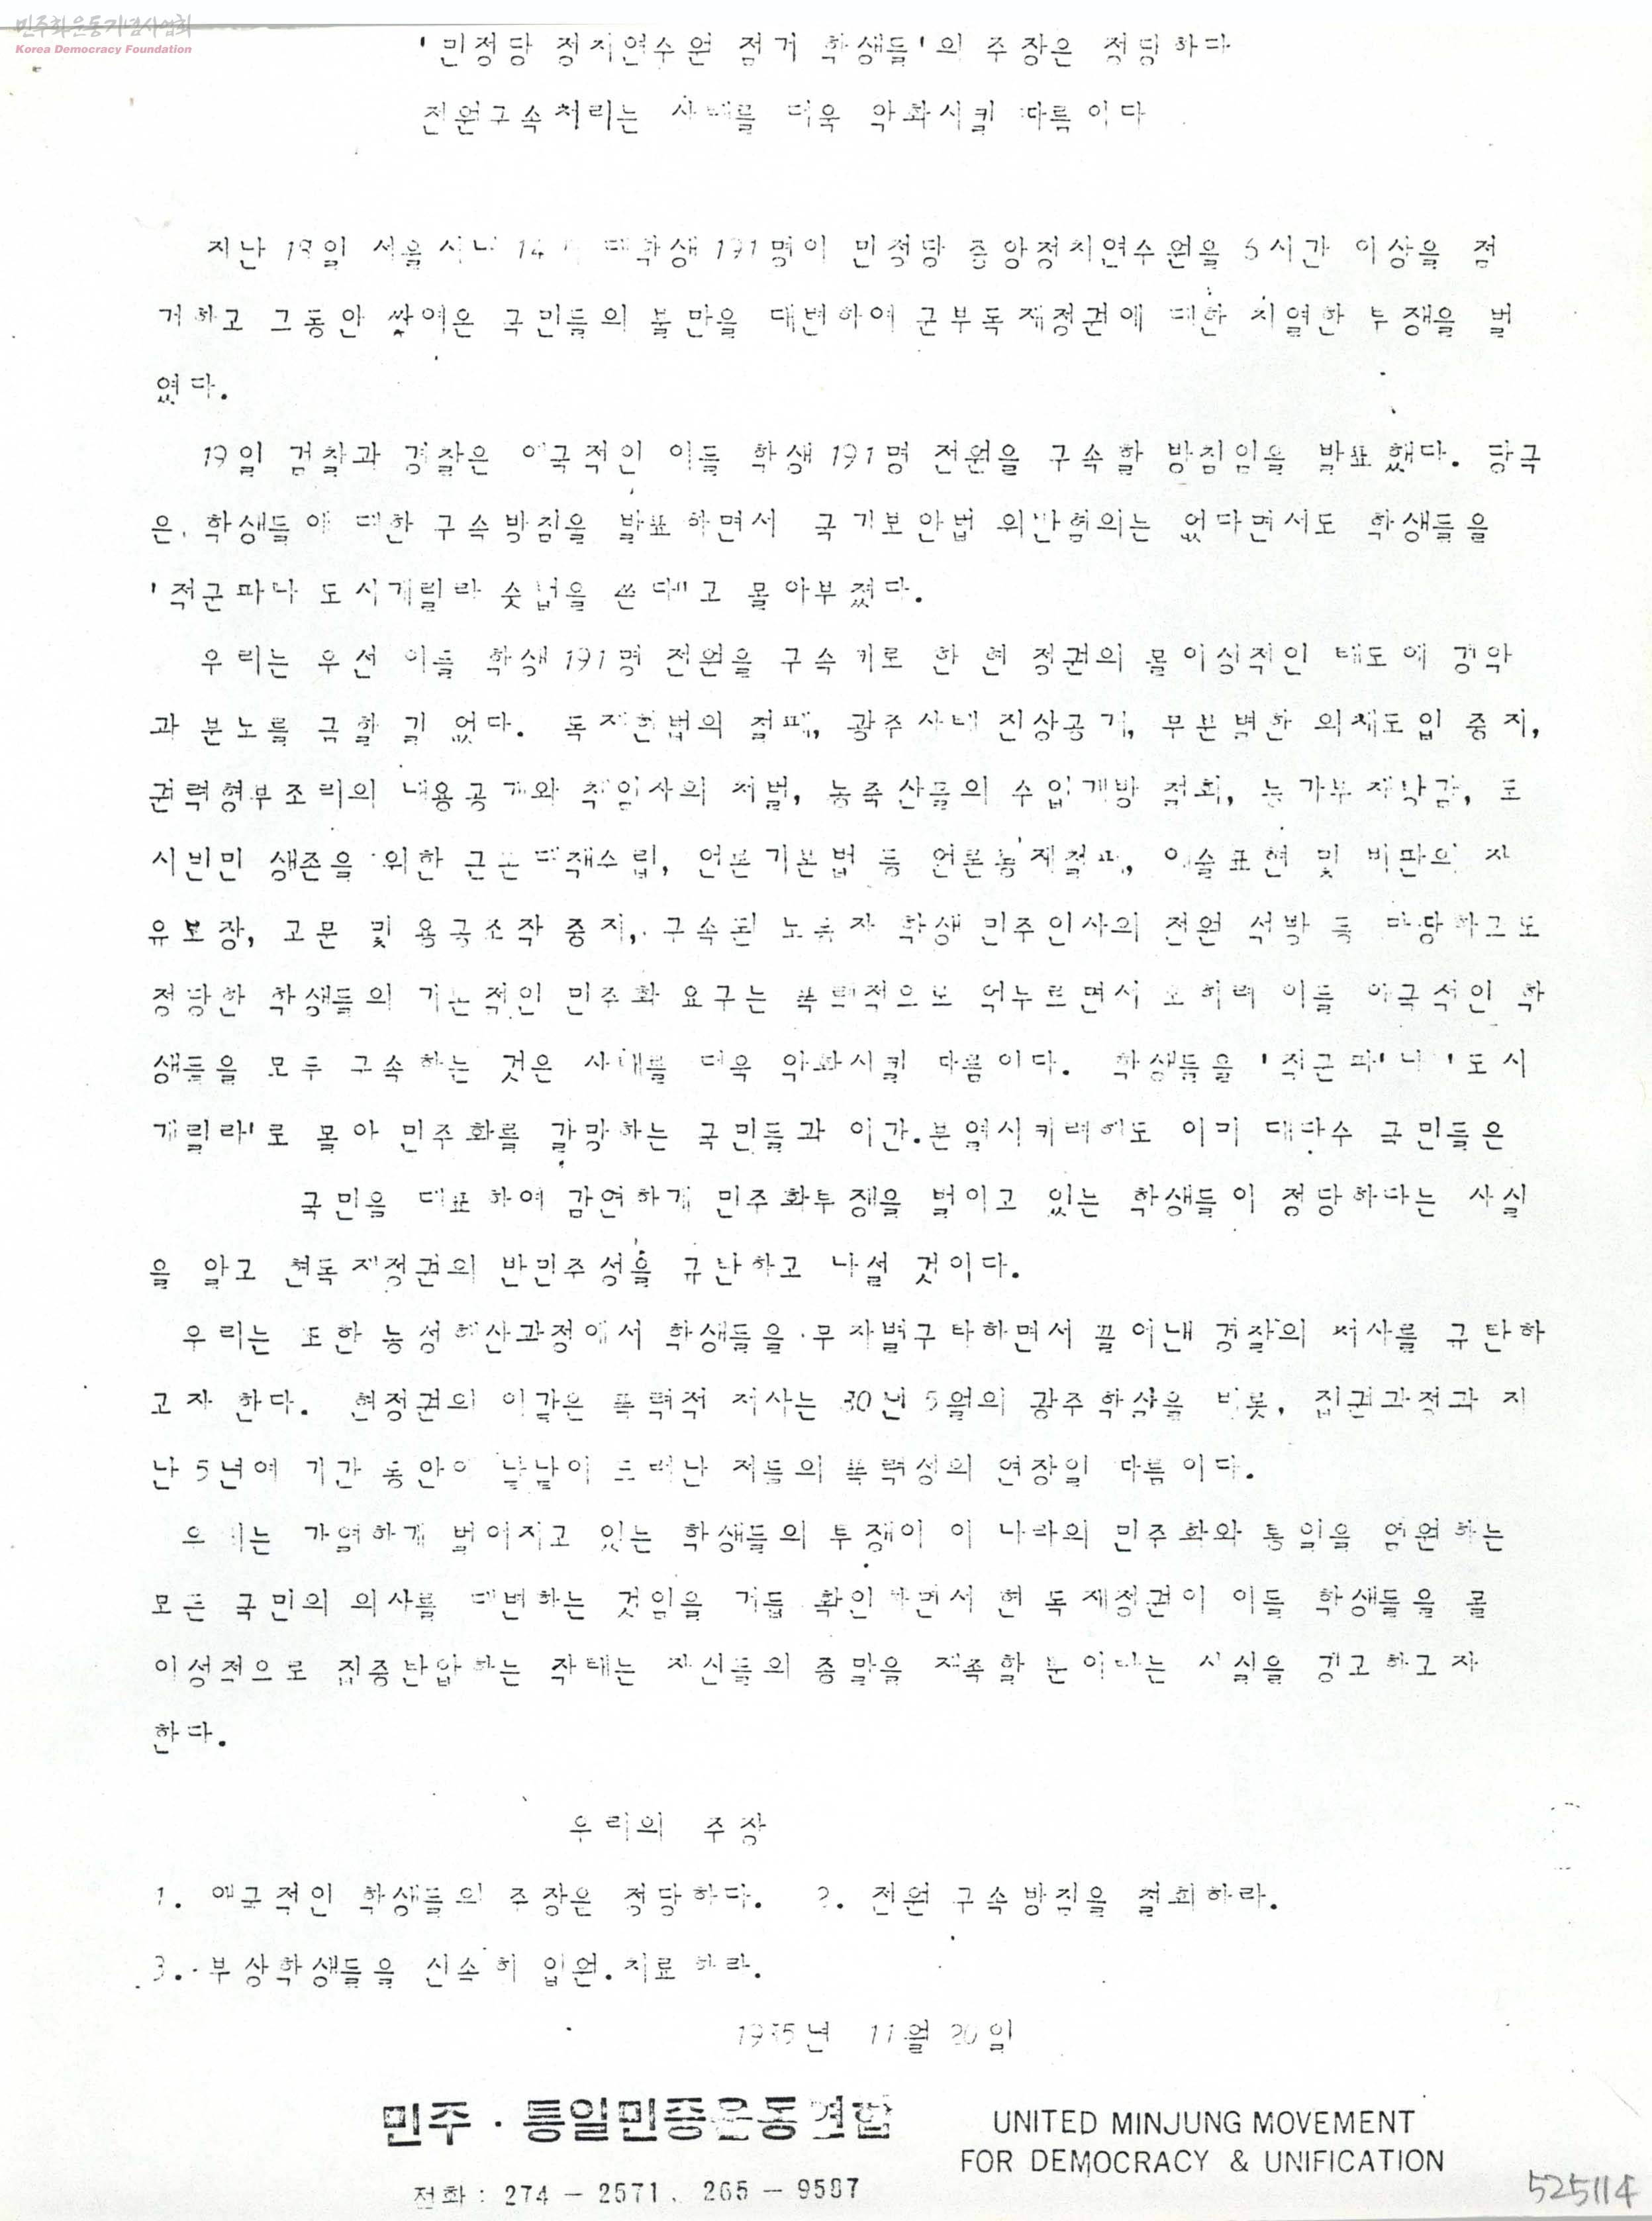 민주화운동기념사업회
Korea Democracy Foundation
'민정당 정치연수원 점거 학생들'의 주장은 정당하다
전원구속처리는 사태를 더욱 악화시킬 따름이다
지난 18일 서울시내 14개 대학생 191명이 민정당 중앙정치연수원을 6시간 이상을 점
거하고 그동안 쌓여온 국민들의 불만을 대변하여 군부독재정권에 대한 치열한 투쟁을 벌
였다.
19일 검찰과 경찰은 애국적인 이들 학생 191명 전원을 구속할 방침임을 발표했다. 당국
은, 학생들에 대한 구속방침을 발표하면서 국가보안법 위반혐의는 없다면서도 학생들을
'적군파나 도시게릴라 숫법을 쓴다"고 몰아부쳤다.
우리는 우선 이들 학생 191명 전원을 구속키로 한 현 정권의 몰이성적인 태도에 경악
과 분노를 금할 길 없다. 독재헌법의 철폐, 광주사태 진상공개, 무분별한 외채도입 중지,
권력형부조리의 내용공개와 책임자의 처벌, 농축산물의 수입개방 철회, 농가부채탕감, 도
시빈민 생존을 위한 근본대책수립, 언론기본법 등 언론통제철폐, 예술표현 및 비판의 자
유보장, 고문 및 용공조작 중지, 구속된 노동자 학생 민주인사의 전원 석방 등 마땅하고도
정당한 학생들의 기본적인 민주화 요구는 폭력적으로 억누르면서 오히려 이들 애국적인 학
생들을 모두 구속하는 것은 사태를 더욱 악화시킬 따름이다. 학생들을 '적군파'나 '도시
게릴라'로 몰아 민주화를 갈망하는 국민들과 이간.분열시키려해도 이미 대다수 국민들은
국민을 대표하여 감연하게 민주화투쟁을 벌이고 있는 학생들이 정당하다는 사실
을 알고 현독재정권의 반민주성을 규탄하고 나설 것이다.
우리는 또한 농성해산과정에서 학생들을 무차별구타하면서 끌어낸 경찰의 처사를 규탄하
고자 한다. 현정권의 이같은 폭력적 처사는 80년 5월의 광주학살을 비롯, 집권과정과 지
난 5년여 기간 동안에 낱낱이 드러난 저들의 폭력성의 연장일 따름이다.
우리는 가열하게 벌어지고 있는 학생들의 투쟁이 이 나라의 민주화와 통일을 염원하는
모든 국민의 의사를 대변하는 것임을 거듭 확인하면서 현 독재정권이 이들 학생들을 몰
이성적으로 집중탄압하는 작태는 자신들의 종말을 재촉할 뿐이라는 사실을 경고하고자
한다.
우리의 주장
1. 애국적인 학생들의 주장은 정당하다. 2. 전원 구속방침을 철회하라.
3. 부상학생들을 신속히 입원.치료하라.
1985년 11월 20일
민주·통일민중운동연합
UNITED MINJUNG MOVEMENT
FOR DEMOCRACY & UNIFICATION
전화 : 274 - 2571, 265 - 9587
525114